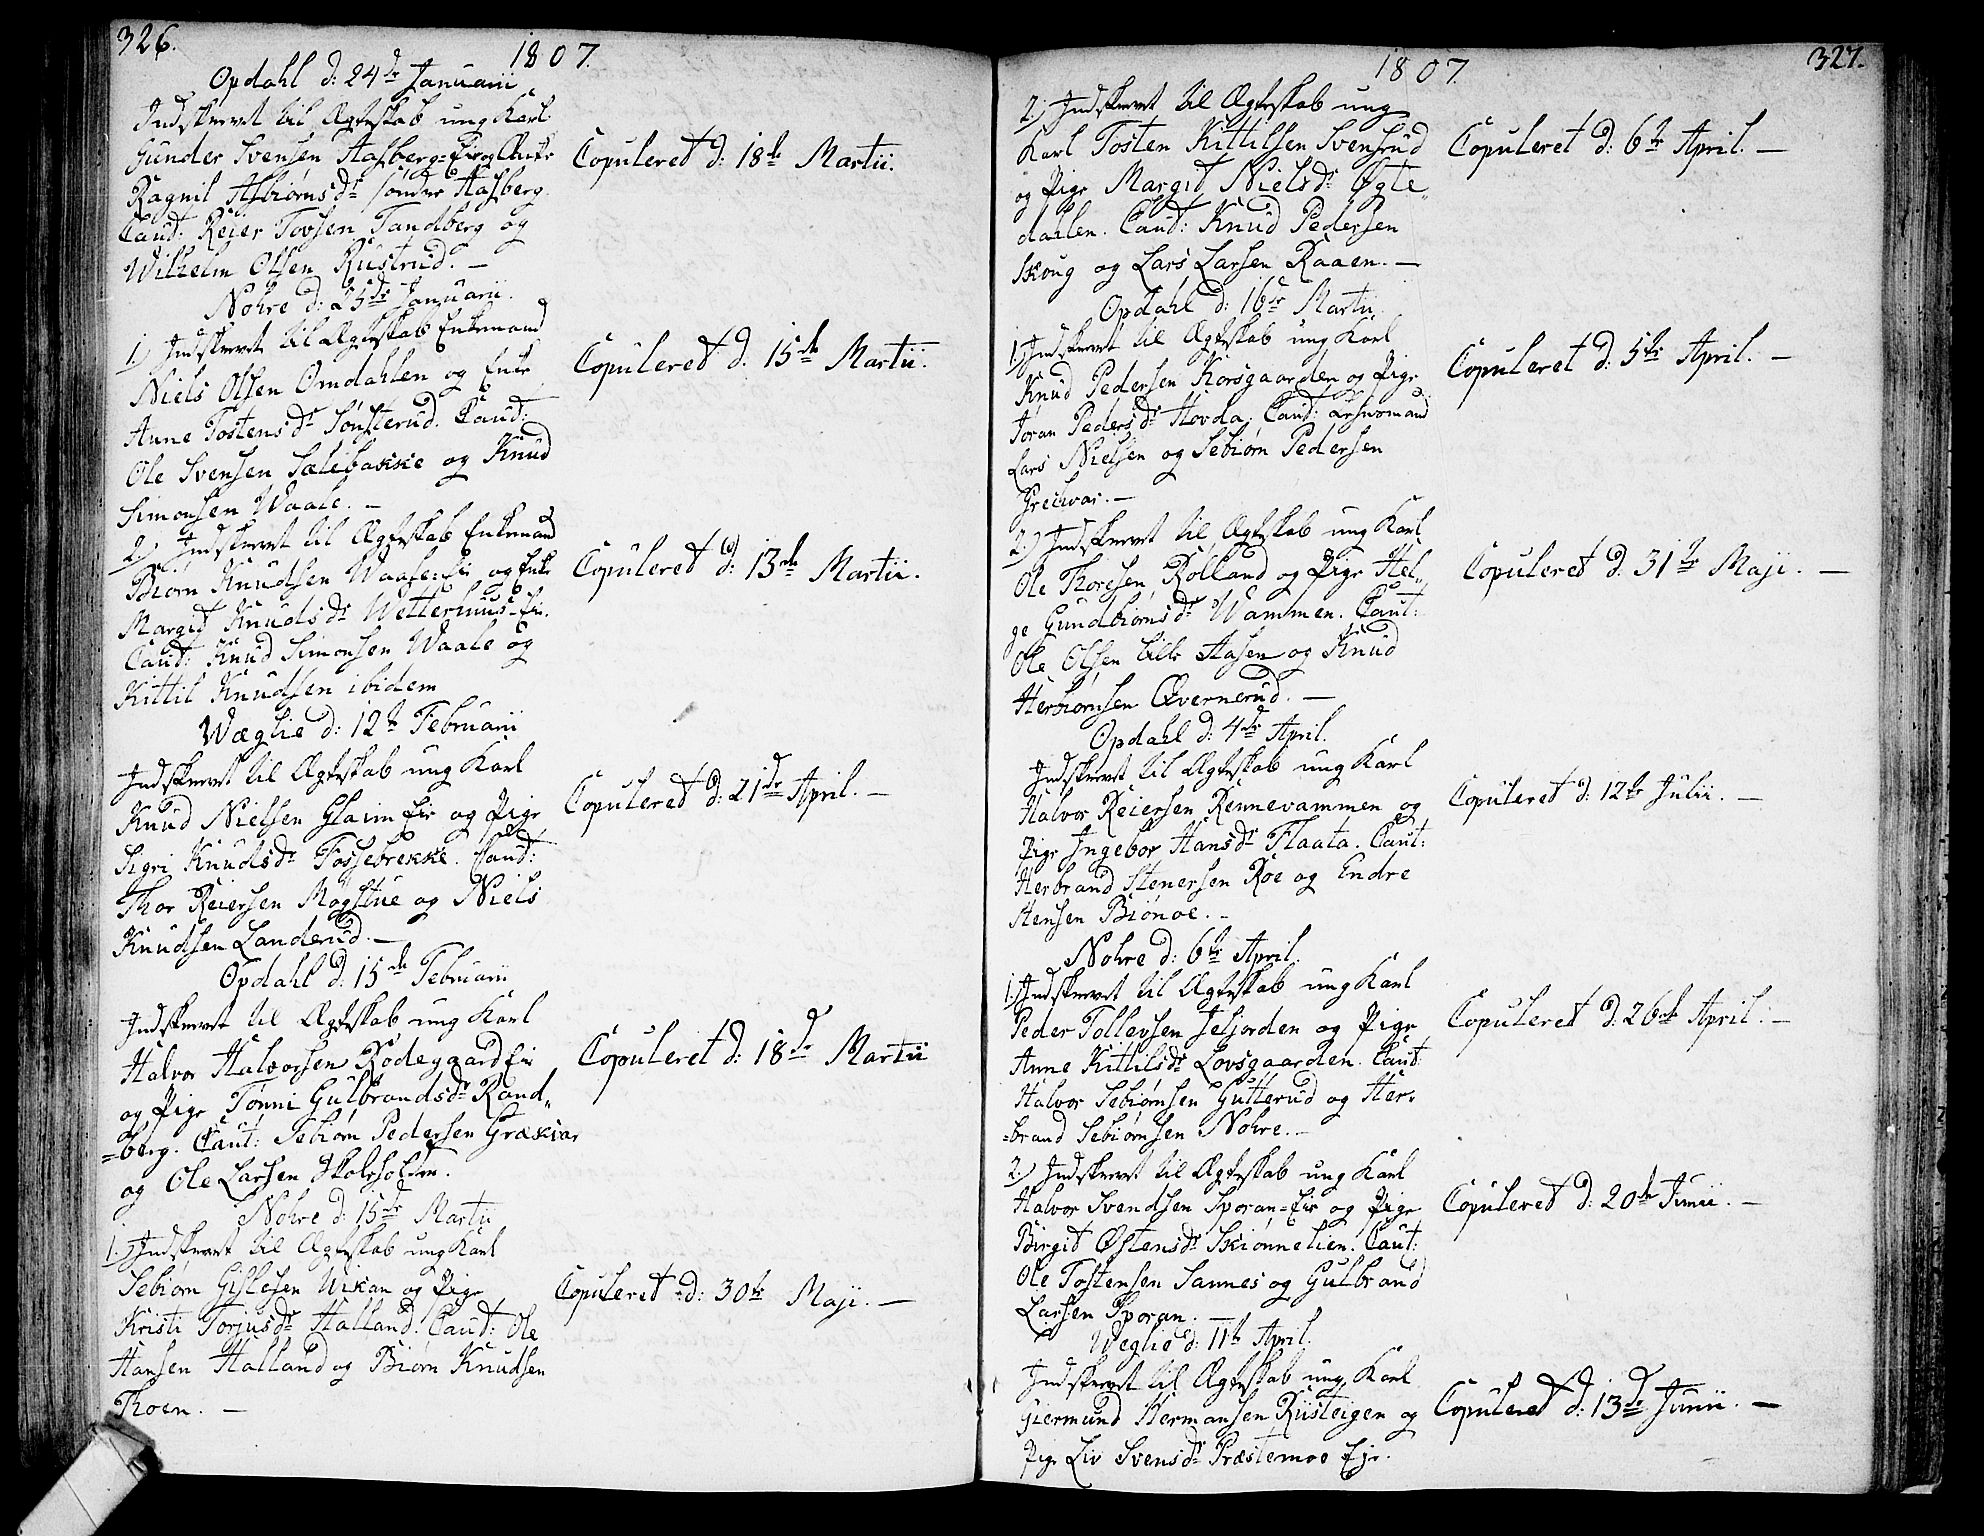 326.
1807.
Opdahl d: 24de Januarii
Indskrevet til Ægteskab ung Karl
Gunder Svensen Aasberg=Eir og Enke
Ragnil Asbiørnsdr søndre Aasberg
Caut: Reier Tovsen Tandberg og
Wilhelm Olsen Rustrud. —
Copuleret d: 18de Martii.
Nohre d: 25de Januarii.
1.) Indskrevet til Ægteskab Enkemand
Niels Olsen Omdahlen og Enke
Anne Tostensdr Sønsterud. Caut:
Ole Svensen Sælebakke og Knud
Simonsen Waale. —
Copuleret d. 15de Martii.
2.) Indskrevet til Ægteskab Enkemand
Biørn Knudsen Waale=Eir og Enke
Margit Knudsdr Wetterhuus=Eir.
Caut: Knud Simonsen Waale og
Kittil Knudsen ibidem
Copuleret d: 13de Martii.
Wæglie d: 12te Februarii
Indskrevet til Ægteskab ung Karl
Knud Nielsen Glaim Eir og Pige
Sigri Knudsdr Fossebrekke. Caut:
Thor Reiersen Møgstue og Niels
Knudsen Landerud. —
Copuleret d: 21de April. —
Opdahl d: 15de Februarii
Indskrevet til Ægteskab ung Karl
Halvor Halvorsen Rødegaard Eir
og Pige Tønni Gulbrandsdr Rand„
=berg. Caut: Sebiørn Pedersen Grækvar
og Ole Larsen Skoleholder.
Copuleret d: 18de Martii
Nohre d: 15de Martii
1.) Indskrevet til Ægteskab ung Karl
Sebiørn Gislesen Wikan og Pige
Kristi Torjusdr Halland. Caut: Ole
Hansen Halland og Biørn Knudsen
Thoen. —
Copuleret d: 30te Maji. —
327.
1807
2.) Indskrevet til Ægteskab ung
Karl Tosten Kittilsen Svensrud
og Pige Margit Nielsdr Øgte„
dahlen. Caut: Knud Pedersen
Skoug og Lars Larsen Raaen. —
Copuleret d: 6te April. —
Opdahl d: 16de Martii
1.) Indskrevet til Ægteskab ung Karl
Knud Pedersen Korsgaarden og Pige
Jøran Pedersdr Hovda. Caut: Lehnsmand
Lars Nielsen og Sebiørn Pedersen
Grechvar. —
Copuleret d: 5te April. —
2.) Indskrevet til Ægteskab ung Karl
Ole Thoresen Rolland og Pige Hel„
ge Gundbiørnsdr Wammen. Caut:
Ole Olsen lille Aasen og Knud
Herbiørnsen Qvernerud. —
Copuleret d. 31te Maji. —
Opdahl d: 4de April.
Indskrevet til Ægteskab ung Karl
Halvor Reiersen Rennevammen og
Pige Ingebor Hansdr Flaata. Caut:
Herbrand Stenersen Roe og Endre
Stensen Biønoe. -
Copuleret d: 12te Julii. —
Nohre d: 6te April.
1.) Indskrevet til Ægteskab ung Karl
Peder Tollevsen Jelsjorden og Pige
Anne Kittilsdr Lovsgaarden. Caut:
Halvor Sebiørnsen Gutterud og Her=
=brand Sebiørnsen Nohre. —
Copuleret d: 26de April. —
2.) Indskrevet til Ægteskab ung Karl
Halvor Svendsen Sporan=Eir og Pige
Birgit Østensdr Skiønnelien. Caut:
Ole Tostensen Sannes og Gulbrand
Larsen Sporan. —
Copuleret d: 20de Junii. —
Weglie d: 11te April.
Indskrevet til Ægteskab ung Karl
Giermund Hermansen Riisteigen og
Pige Liv Svensdr Præstemoe Eje.
Copuleret d: 13de Junii. —